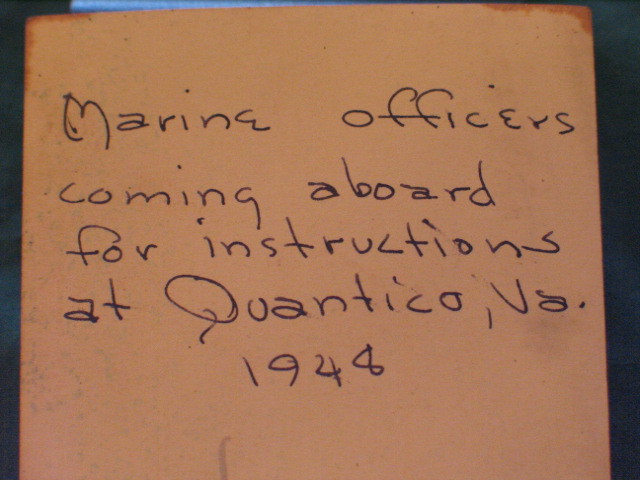 Marine officers
coming aboard
for instructions
at Quantico, Va.
1948